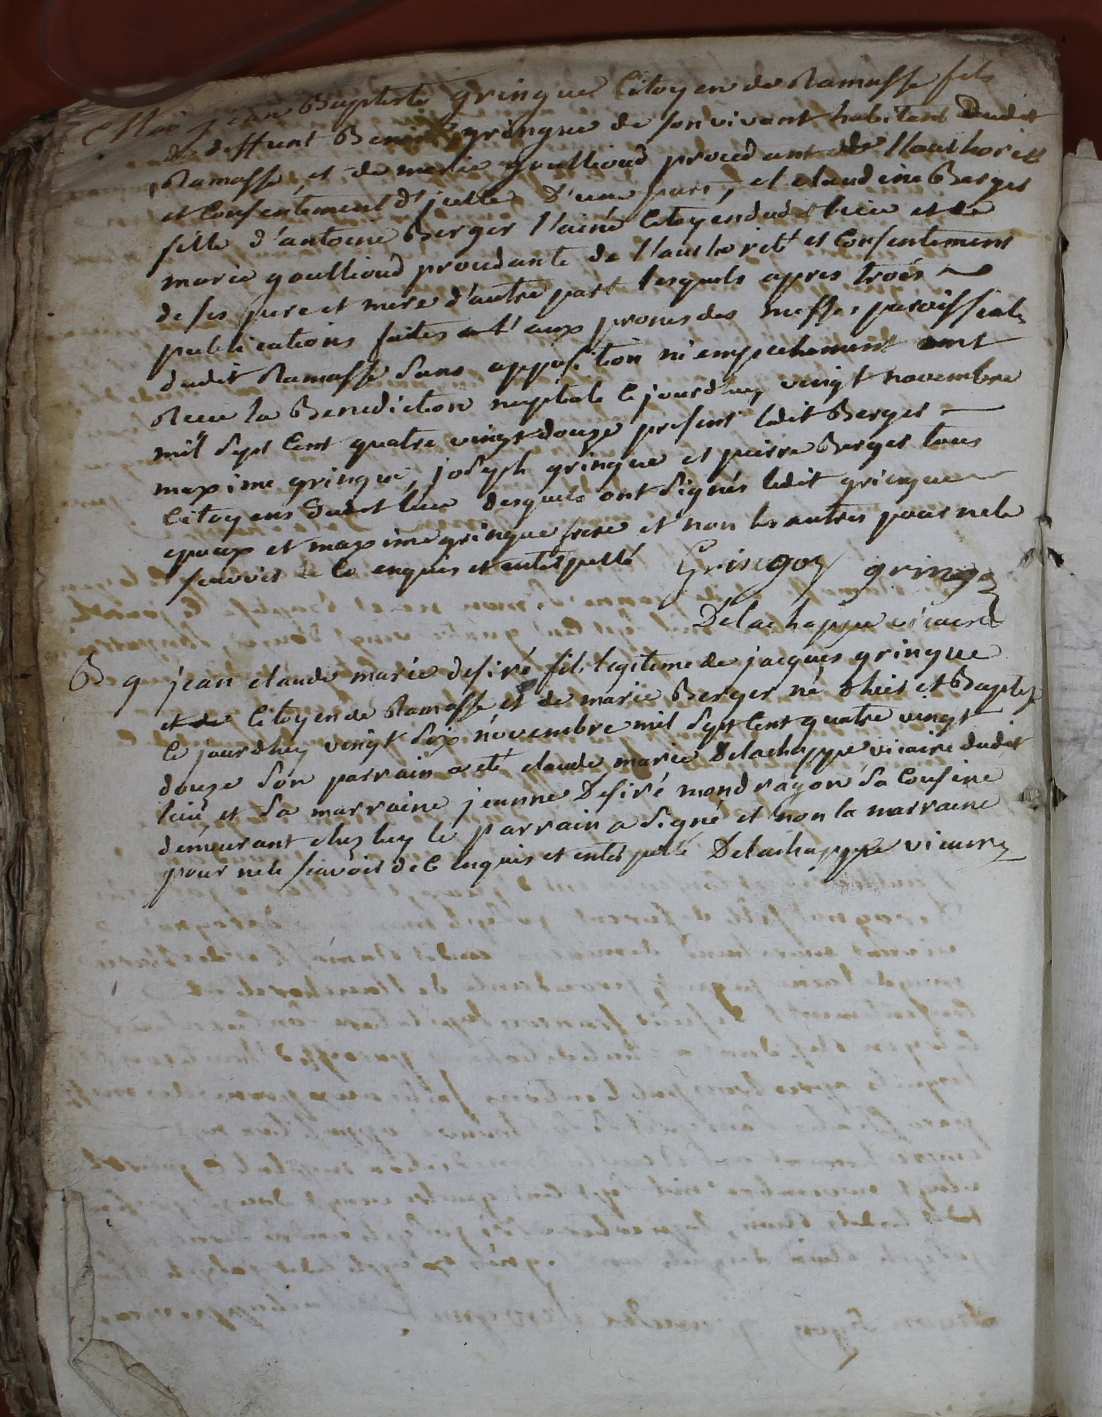 jean Baptiste gringue Citoyen de Ramasse fils
de deffunt Benoit gringue de son vivant habitant dudit
Ramasse et de marie goullioud procedant de l'authorité
et consentement d'icelle d'une part, et claudine Berger
fille d'antoine Berger l'ainé Citoyen dudit lieu et de
marie goullioud procedante de l'authorité et Consentement
de ses pere et mere d'autre part lesquels apres trois
publications faites aux prones des messes paroissiales
dudit Ramasse sans opposition ni empechement ont
Recu la Benediction nuptiale ce jourd'uy vingt novembre
mil sept Cent quatre vingt douze présent ledit Berger
maxime gringue, joseph gringue et pierre Berger tous
Citoyens dudit lieu desquels ont signés ledit gringue
epoux et maxime gringue frere et non les autres pour ne le
scavoir de ce enquis et interpellé Gringoz gringoz
Delachappe vicaire
B 9 jean claude marie desiré fils legitime de jacques gringue
Citoyen de Ramasse et de marie Berger né hier et Baptisé
ce jourdhuy vingt six novembre mil sept Cent quatre vingt
douze son parrain a eté claude marie Delachappe vicaire dudit
lieu et sa marraine jeanne Desiré mondragon sa Cousine
demeurant chez luy le parrain a signé et non la marraine
pour ne le scavoir de C enquis et interpellé Delachappe vicaire